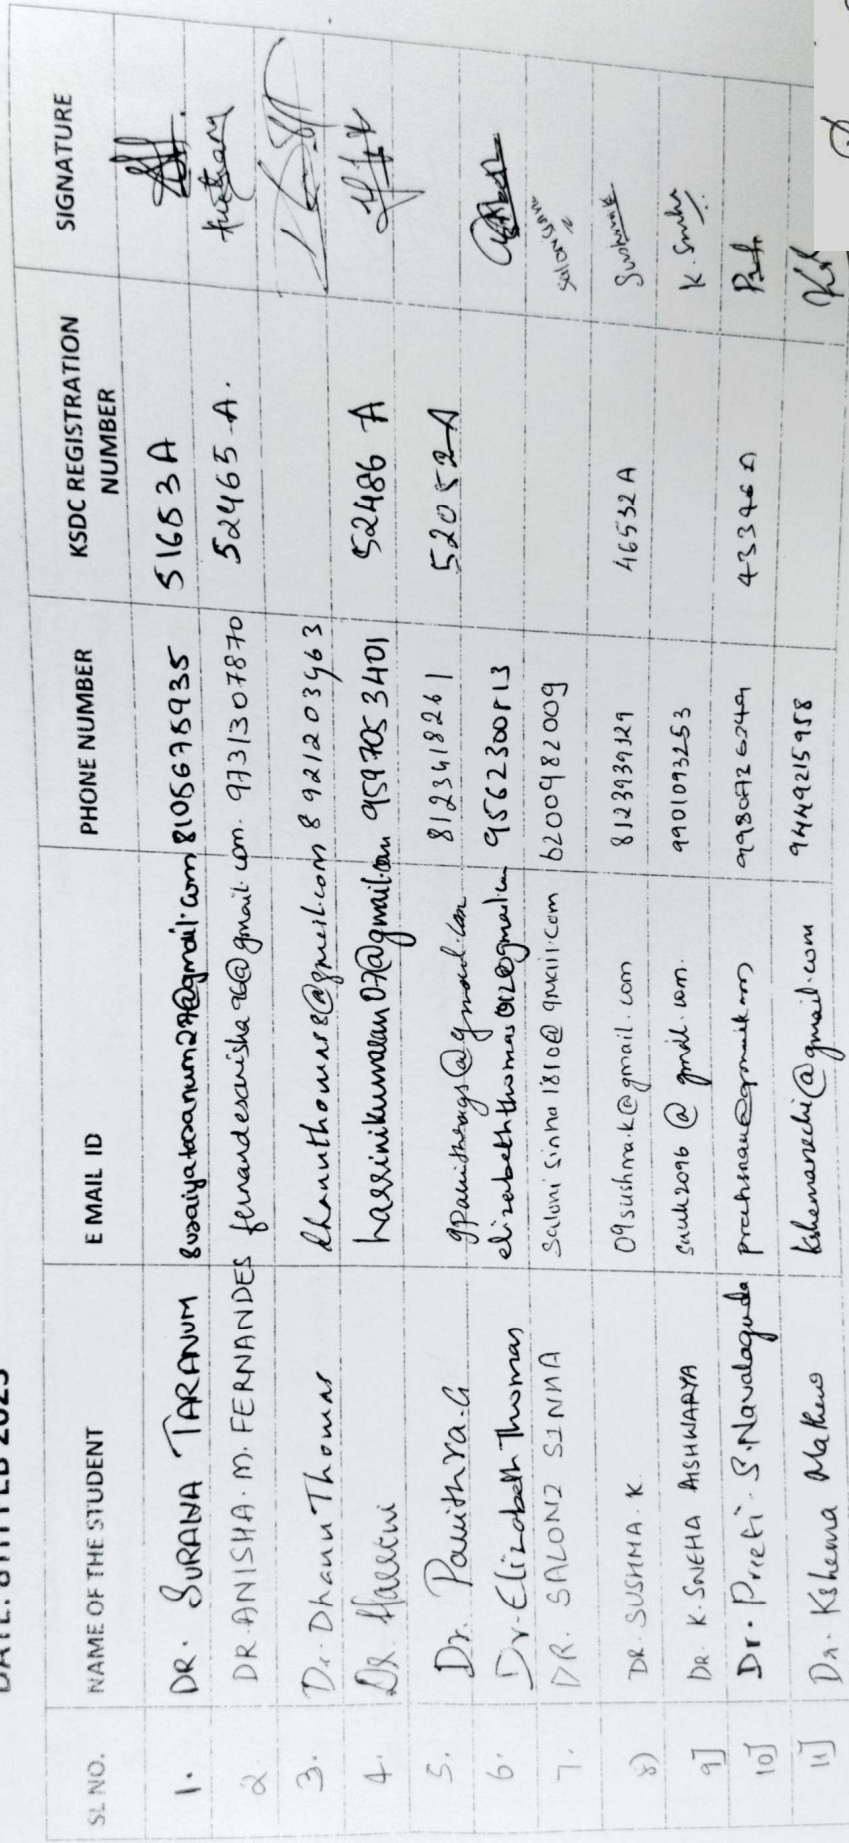 SL NO. NAME OF THE STUDENT E MAIL ID PHONE NUMBER KSDC REGISTRATION NUMBER SIGNATURE
1. DR. SURAIYA TARANUM suraiyataranum27@gmail.com 8105675935 51653 A
2 DR. ANISHA. M. FERNANDES fernandesanisha96@gmail.com. 9731307870 52465 A.
3. Dr. Dhanu Thomas dhanuthomas8@gmail.com 8921203963
4. Dr. Hassini hassinikumaran07@gmail.com 9597053401 52486 A
5. Dr. Pavithra.G gpavithrags@gmail.com 8123418261 52052A
6. Dr. Elizabeth Thomas elizabeththomas012@gmail.com 9562300813
7. DR. SALONI SINHA Salonisinha1810@gmail.com 6200982009
8) DR. SUSHMA. K. 09sushma.k@gmail.com 8123939329 46532 A Sushma K
9] DR. K. SNEHA AISHWARYA 9901093253 K. Sneha
10] Dr. Preeti. S. Navalagunda
11] Dr. Kshema Mathews 9449215958